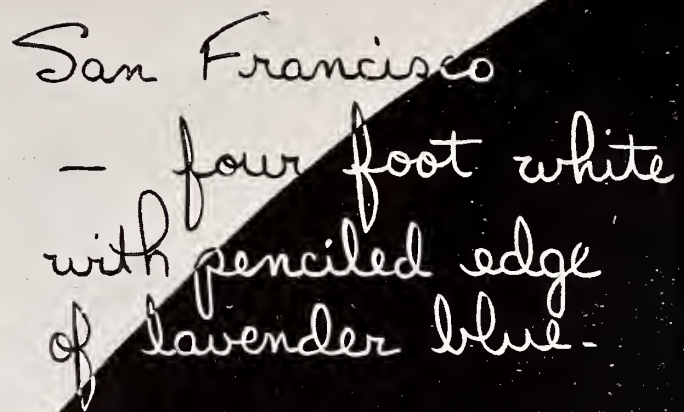 San Francisco
— four foot white
with penciled edge
of lavender blue-